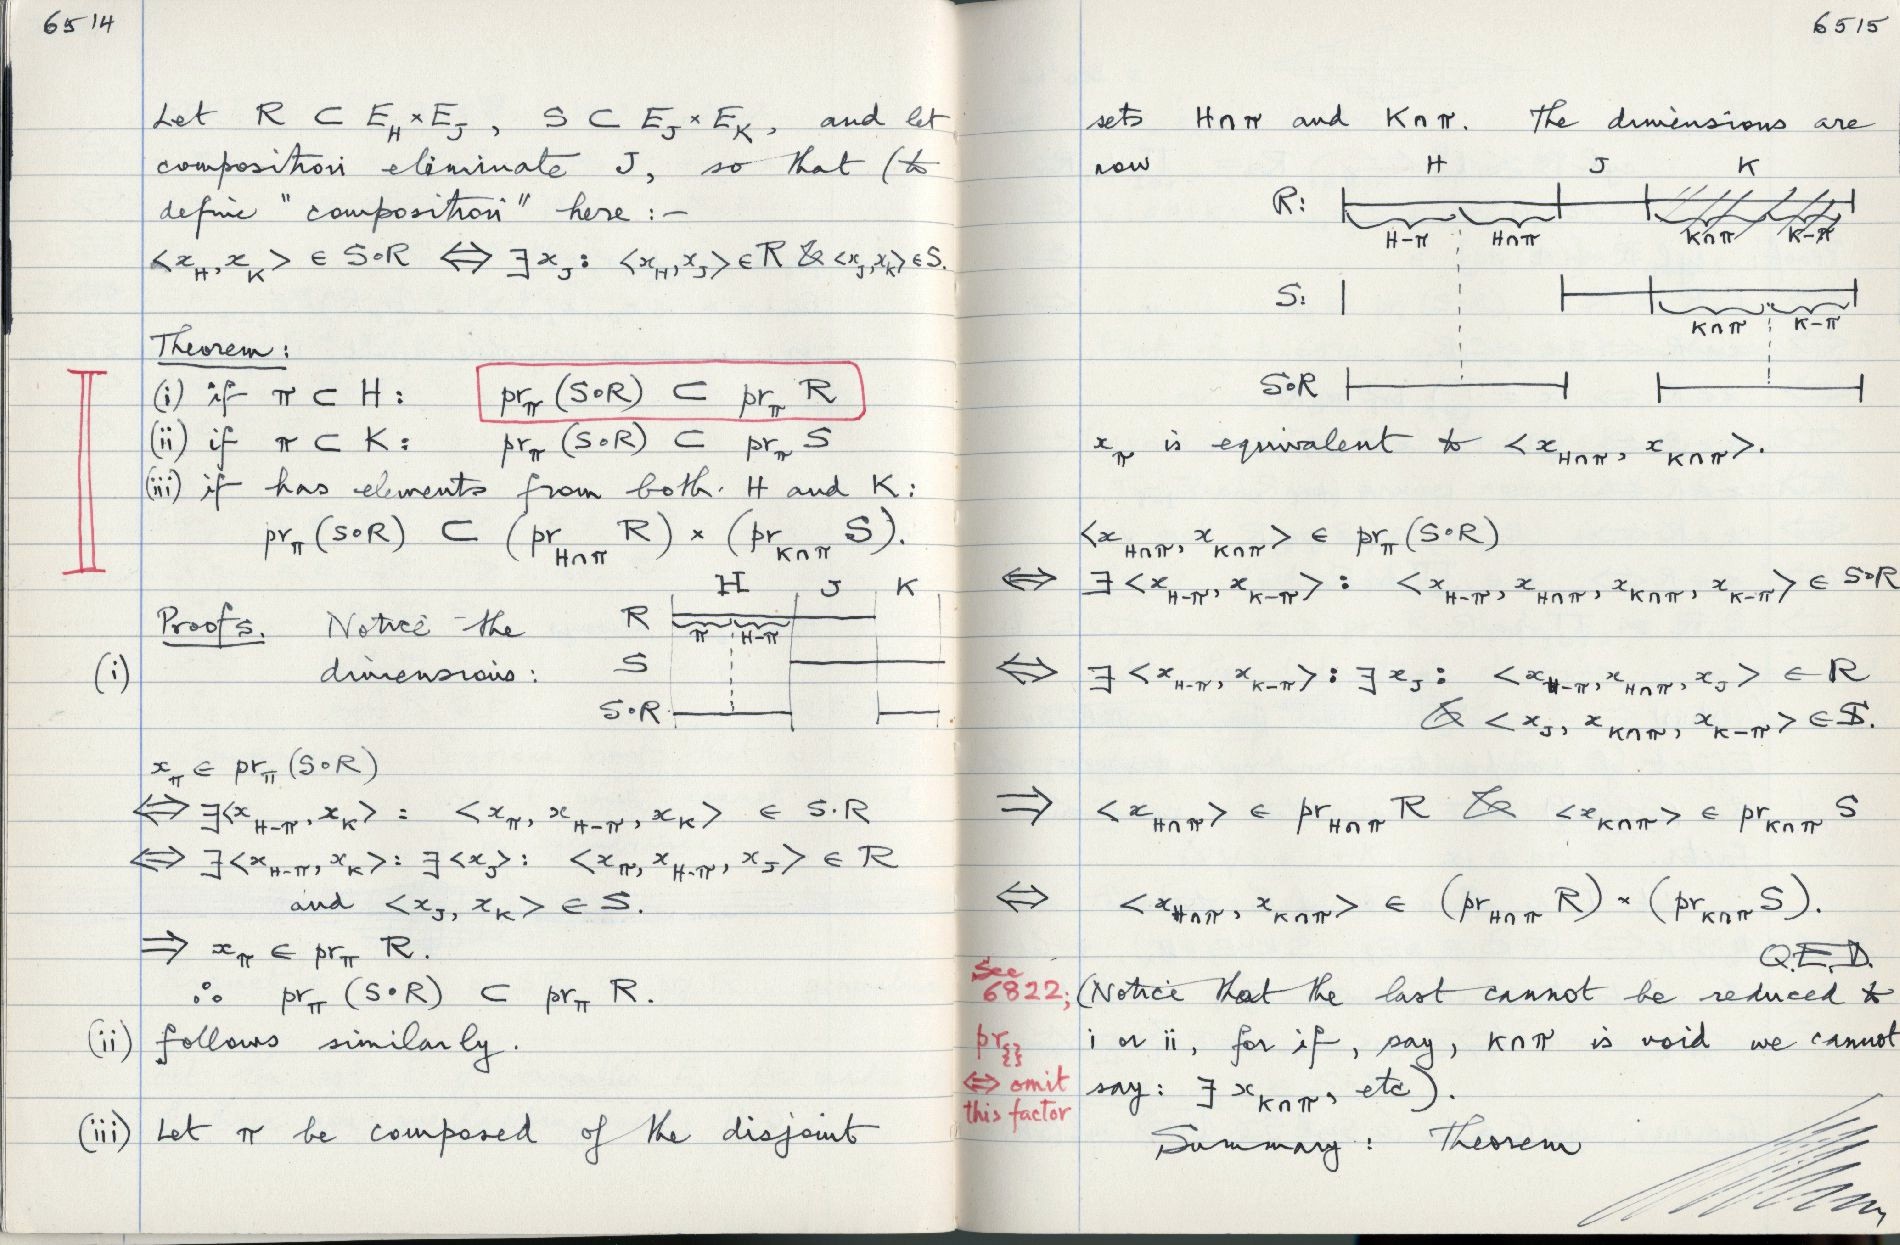 6514
Let R ⊂ E_H × E_J, S ⊂ E_J × E_K, and let
composition eliminate J, so that (to
define "composition" here :-
<x_H, x_K> ∈ S∘R ⇔ ∃ x_J : <x_H, x_J> ∈ R & <x_J, x_K> ∈ S.
Theorem:
(i) if π ⊂ H : pr_π (S∘R) ⊂ pr_π R
(ii) if π ⊂ K : pr_π (S∘R) ⊂ pr_π S
(iii) if has elements from both H and K :
pr_π (S∘R) ⊂ (pr_{H∩π} R) × (pr_{K∩π} S).
H J K
Proofs. Notice the R
π H-π
(i) dimensions : S
S∘R
x_π ∈ pr_π (S∘R)
⇔ ∃<x_{H-π}, x_K> : <x_π, x_{H-π}, x_K> ∈ S∘R
⇔ ∃<x_{H-π}, x_K> : ∃<x_J> : <x_π, x_{H-π}, x_J> ∈ R
and <x_J, x_K> ∈ S.
⇒ x_π ∈ pr_π R.
∴ pr_π (S∘R) ⊂ pr_π R.
(ii) follows similarly.
(iii) Let π be composed of the disjoint
6515
sets H∩π and K∩π. The dimensions are
now H J K
R:
H-π H∩π K∩π K-π
S:
K∩π K-π
S∘R
x_π is equivalent to <x_{H∩π}, x_{K∩π}>.
<x_{H∩π}, x_{K∩π}> ∈ pr_π (S∘R)
⇔ ∃ <x_{H-π}, x_{K-π}> : <x_{H-π}, x_{H∩π}, x_{K∩π}, x_{K-π}> ∈ S∘R
⇔ ∃ <x_{H-π}, x_{K-π}> : ∃ x_J : <x_{H-π}, x_{H∩π}, x_J> ∈ R
& <x_J, x_{K∩π}, x_{K-π}> ∈ S.
⇒ <x_{H∩π}> ∈ pr_{H∩π} R & <x_{K∩π}> ∈ pr_{K∩π} S
⇔ <x_{H∩π}, x_{K∩π}> ∈ (pr_{H∩π} R) × (pr_{K∩π} S).
Q.E.D.
See
6822;
pr_{{}}
⇔ omit
this factor
(Notice that the last cannot be reduced to
i or ii, for if, say, K∩π is void we cannot
say : ∃ x_{K∩π}, etc).
Summary : Theorem